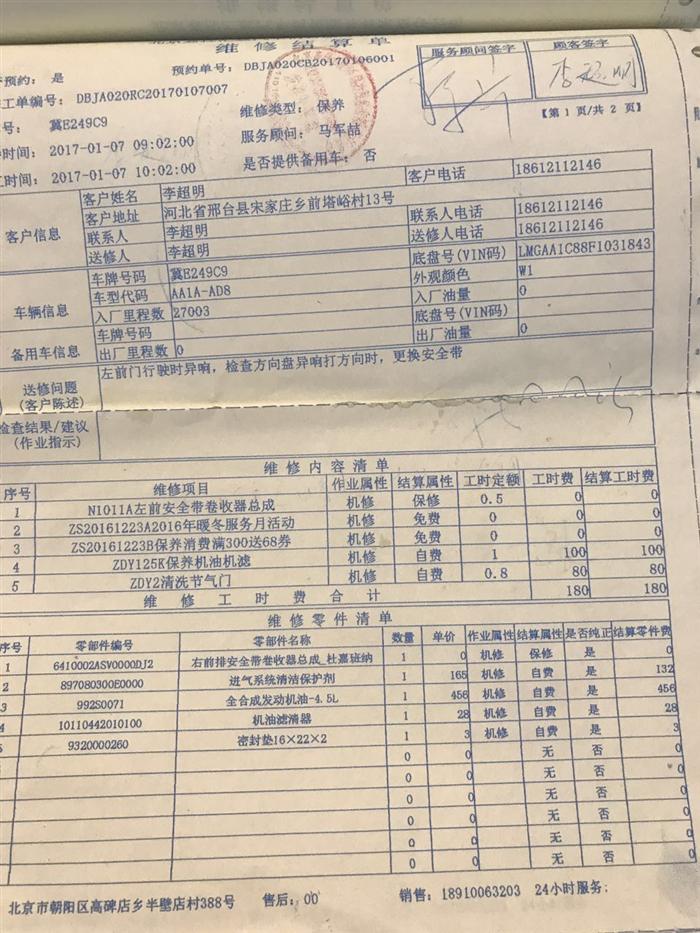 维修结算单
预约: 是 预约单号: DBJA020CB20170106001 服务顾问签字 顾客签字
工单编号: DBJA020RC20170107007 李超明
号: 冀E249C9 维修类型: 保养
时间: 2017-01-07 09:02:00 服务顾问: 马军喆 【第 1 页/共 2 页】
时间: 2017-01-07 10:02:00 是否提供备用车: 否
客户信息
客户姓名 李超明 客户电话 18612112146
客户地址 河北省邢台县宋家庄乡前塔峪村13号
联系人 李超明 联系人电话 18612112146
送修人 李超明 送修人电话 18612112146
车辆信息
车牌号码 冀E249C9 底盘号(VIN码) LMGAA1C88F1031843
车型代码 AA1A-AD8 外观颜色 W1
入厂里程数 27003 入厂油量 0
备用车信息
车牌号码 底盘号(VIN码)
出厂里程数 0 出厂油量 0
送修问题
(客户陈述)
左前门行驶时异响，检查方向盘异响打方向时，更换安全带
检查结果/建议
(作业指示)
维修内容清单
序号 维修项目 作业属性 结算属性 工时定额 工时费 结算工时费
1 N1011A左前安全带卷收器总成 机修 保修 0.5 0 0
2 ZS20161223A2016年暖冬服务月活动 机修 免费 0 0 0
3 ZS20161223B保养消费满300送68券 机修 免费 0 0 0
4 ZDY125K保养机油机滤 机修 自费 1 100 100
5 ZDY2清洗节气门 机修 自费 0.8 80 80
维修工时费合计 180 180
维修零件清单
序号 零部件编号 零部件名称 数量 单价 作业属性 结算属性 是否纯正 结算零件费
1 6410002ASV0000DJ2 右前排安全带卷收器总成_杜嘉班纳 1 0 机修 保修 是 0
2 897080300E0000 进气系统清洁保护剂 1 165 机修 自费 是 132
3 992S0071 全合成发动机油-4.5L 1 456 机修 自费 是 456
4 10110442010100 机油滤清器 1 28 机修 自费 是 28
5 9320000260 密封垫16×22×2 1 3 机修 自费 是 3
0 0 无 否 0
0 0 无 否 0
0 0 无 否 0
0 0 无 否 0
0 0 无 否 0
0 0 无 否 0
北京市朝阳区高碑店乡半壁店村388号 售后: 00 销售: 18910063203 24小时服务: